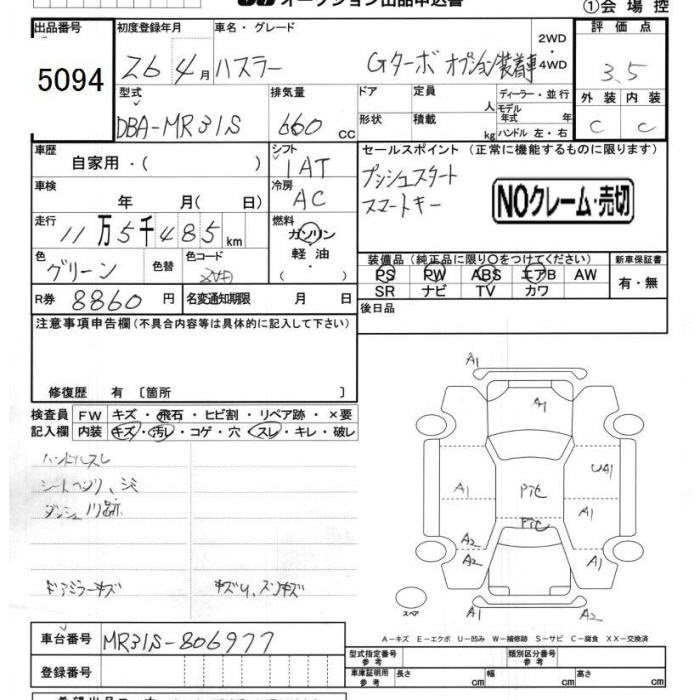 オークション出品申込書
①会場控
出品番号 初度登録年月 車名・グレード 2WD 4WD 評価点
5094 26年4月 ハスラー Gターボ オプション装着車 3.5
型式 排気量 ドア 定員 人 ディーラー・並行 外装 内装
DBA-MR31S 660cc 形状 積載 kg モデル年式 年 ハンドル 左・右 C C
車歴 シフト セールスポイント (正常に機能するものに限ります)
自家用・( ) IAT プッシュスタート
車検 冷房 スマートキー
年 月( 日) AC NOクレーム・売切
走行 燃料
11万5千485km ガソリン・軽油・( )
色 色替 色コード 装備品(純正品に限り○をつけてください) 新車保証書
グリーン PS PW ABS エアB AW 有・無
SR ナビ TV カワ
R券 8860円 名変通知期限 月 日 後日品
注意事項申告欄(不具合内容等は具体的に記入して下さい)
修復歴 有 〔箇所 〕
検査員 FW キズ・飛石・ヒビ割・リペア跡・×要
記入欄 内装 キズ・汚レ・コゲ・穴・スレ・キレ・破レ
ハンドルスレ
シートヘタリ、シミ
ダッシュ川跡
ドアミラーキズ キズり、スリキズ
A1
A1
A1 PTC U41
PTC A1
A2 A2
A2 A1
A1 A2
スペア
A-キズ E-エクボ U-凹み W-補修跡 S-サビ C-腐食 XX-交換済
車台番号 MR31S-806977
登録番号
型式指定番号 参考 類別区分番号 参考
車庫証明用 参考 長さ cm 幅 cm 高さ cm